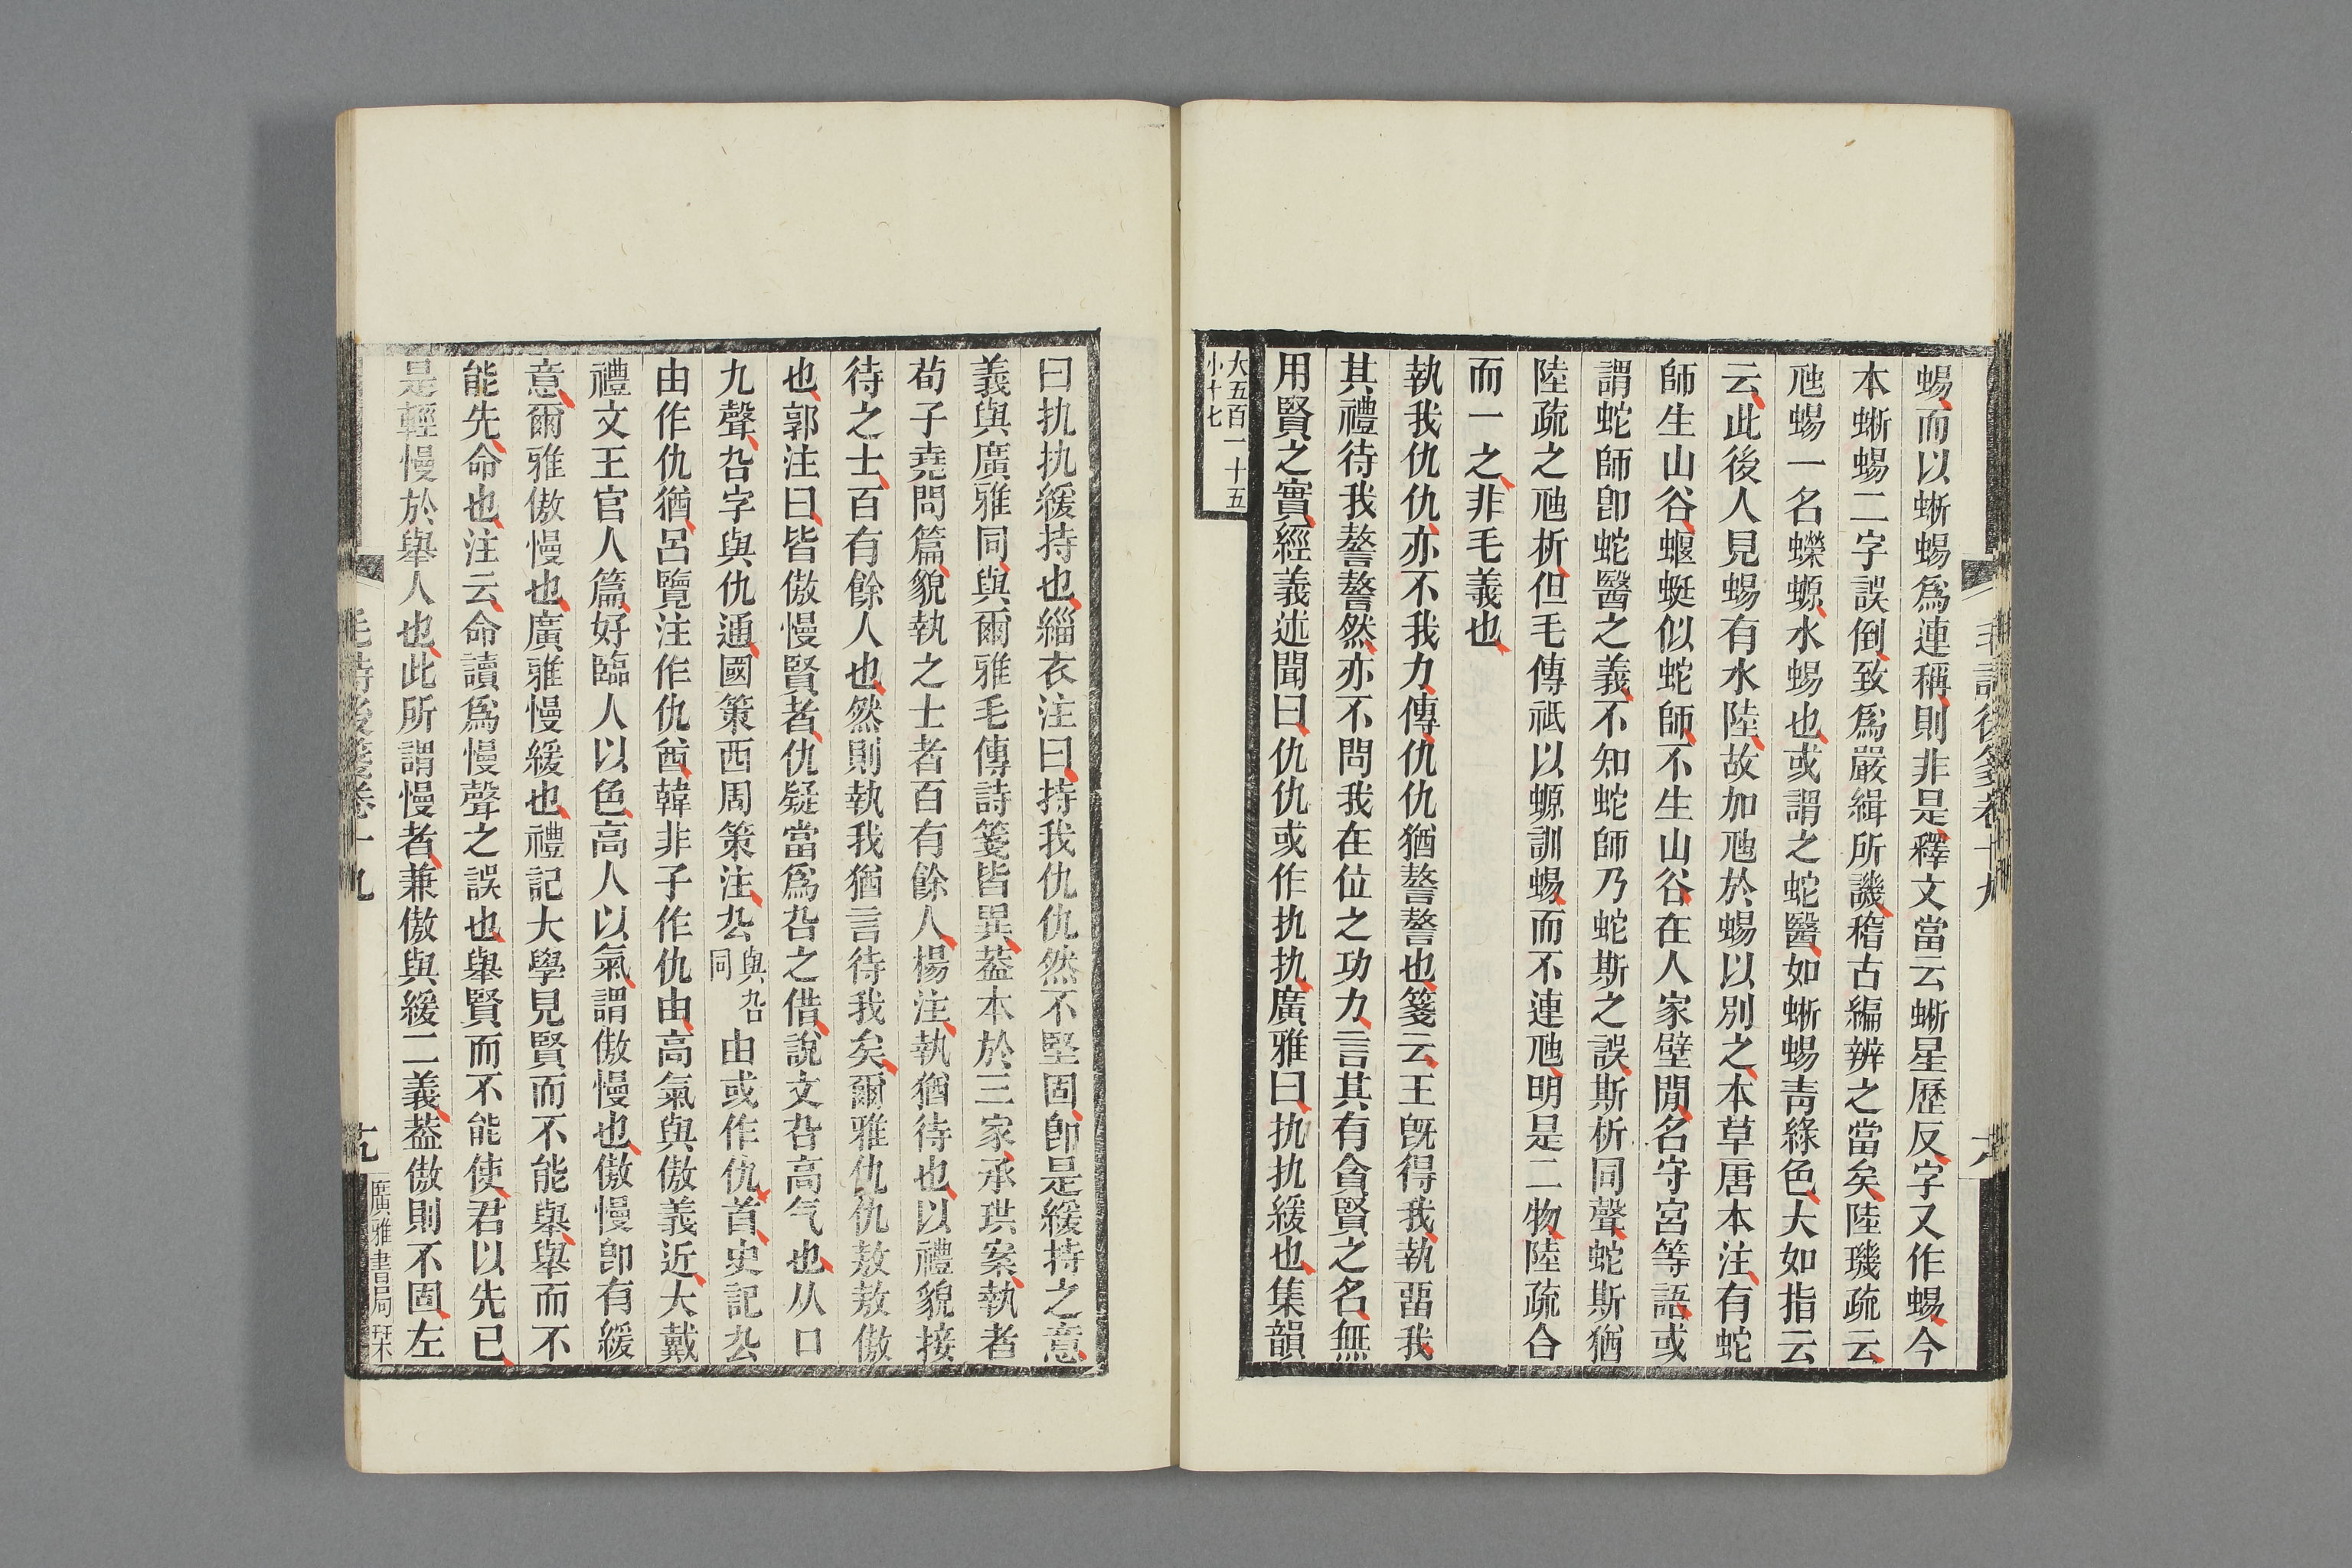 蜴而以蜥蜴爲連稱則非是釋文當云蜥星歷反字又作蜴今
本蜥蜴二字誤倒致爲嚴緝所譏稽古編辨之當矣陸璣疏云
虺蜴一名蠑螈水蜴也或謂之蛇醫如蜥蜴靑綠色大如指云
云此後人見蜴有水陸故加虺於蜴以別之本草唐本注有蛇
師生山谷蝘蜓似蛇師不生山谷在人家壁閒名守宮等語或
謂蛇師卽蛇醫之義不知蛇師乃蛇斯之誤斯析同聲蛇斯猶
陸疏之虺析但毛傳祇以螈訓蜴而不連虺明是二物陸疏合
而一之非毛義也
執我仇仇亦不我力傳仇仇猶謷謷也箋云王旣得我執畱我
其禮待我謷謷然亦不問我在位之功力言其有貪賢之名無
用賢之實經義述聞曰仇仇或作扏扏廣雅曰扏扏緩也集韻
大五百一十五
小十七
曰扏扏緩持也緇衣注曰持我仇仇然不堅固卽是緩持之意
義與廣雅同與爾雅毛傳詩箋皆異葢本於三家承珙案執者
荀子堯問篇貌執之士者百有餘人楊注執猶待也以禮貌接
待之士百有餘人也然則執我猶言待我矣爾雅仇仇敖敖傲
也郭注曰皆傲慢賢者仇疑當爲叴之借說文叴高气也从口
九聲叴字與仇通國策西周策注厹與叴同由或作仇首史記厹
由作仇猶呂覽注作仇酋韓非子作仇由高氣與傲義近大戴
禮文王官人篇好臨人以色高人以氣謂傲慢也傲慢卽有緩
意爾雅傲慢也廣雅慢緩也禮記大學見賢而不能舉舉而不
能先命也注云命讀爲慢聲之誤也舉賢而不能使君以先已
是輕慢於舉人也此所謂慢者兼傲與緩二義葢傲則不固左
毛詩後箋卷十九
十九
廣雅書局栞